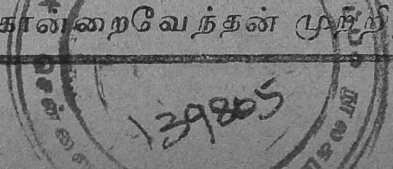 கான்றைவேந்தன் முற்றி
139805